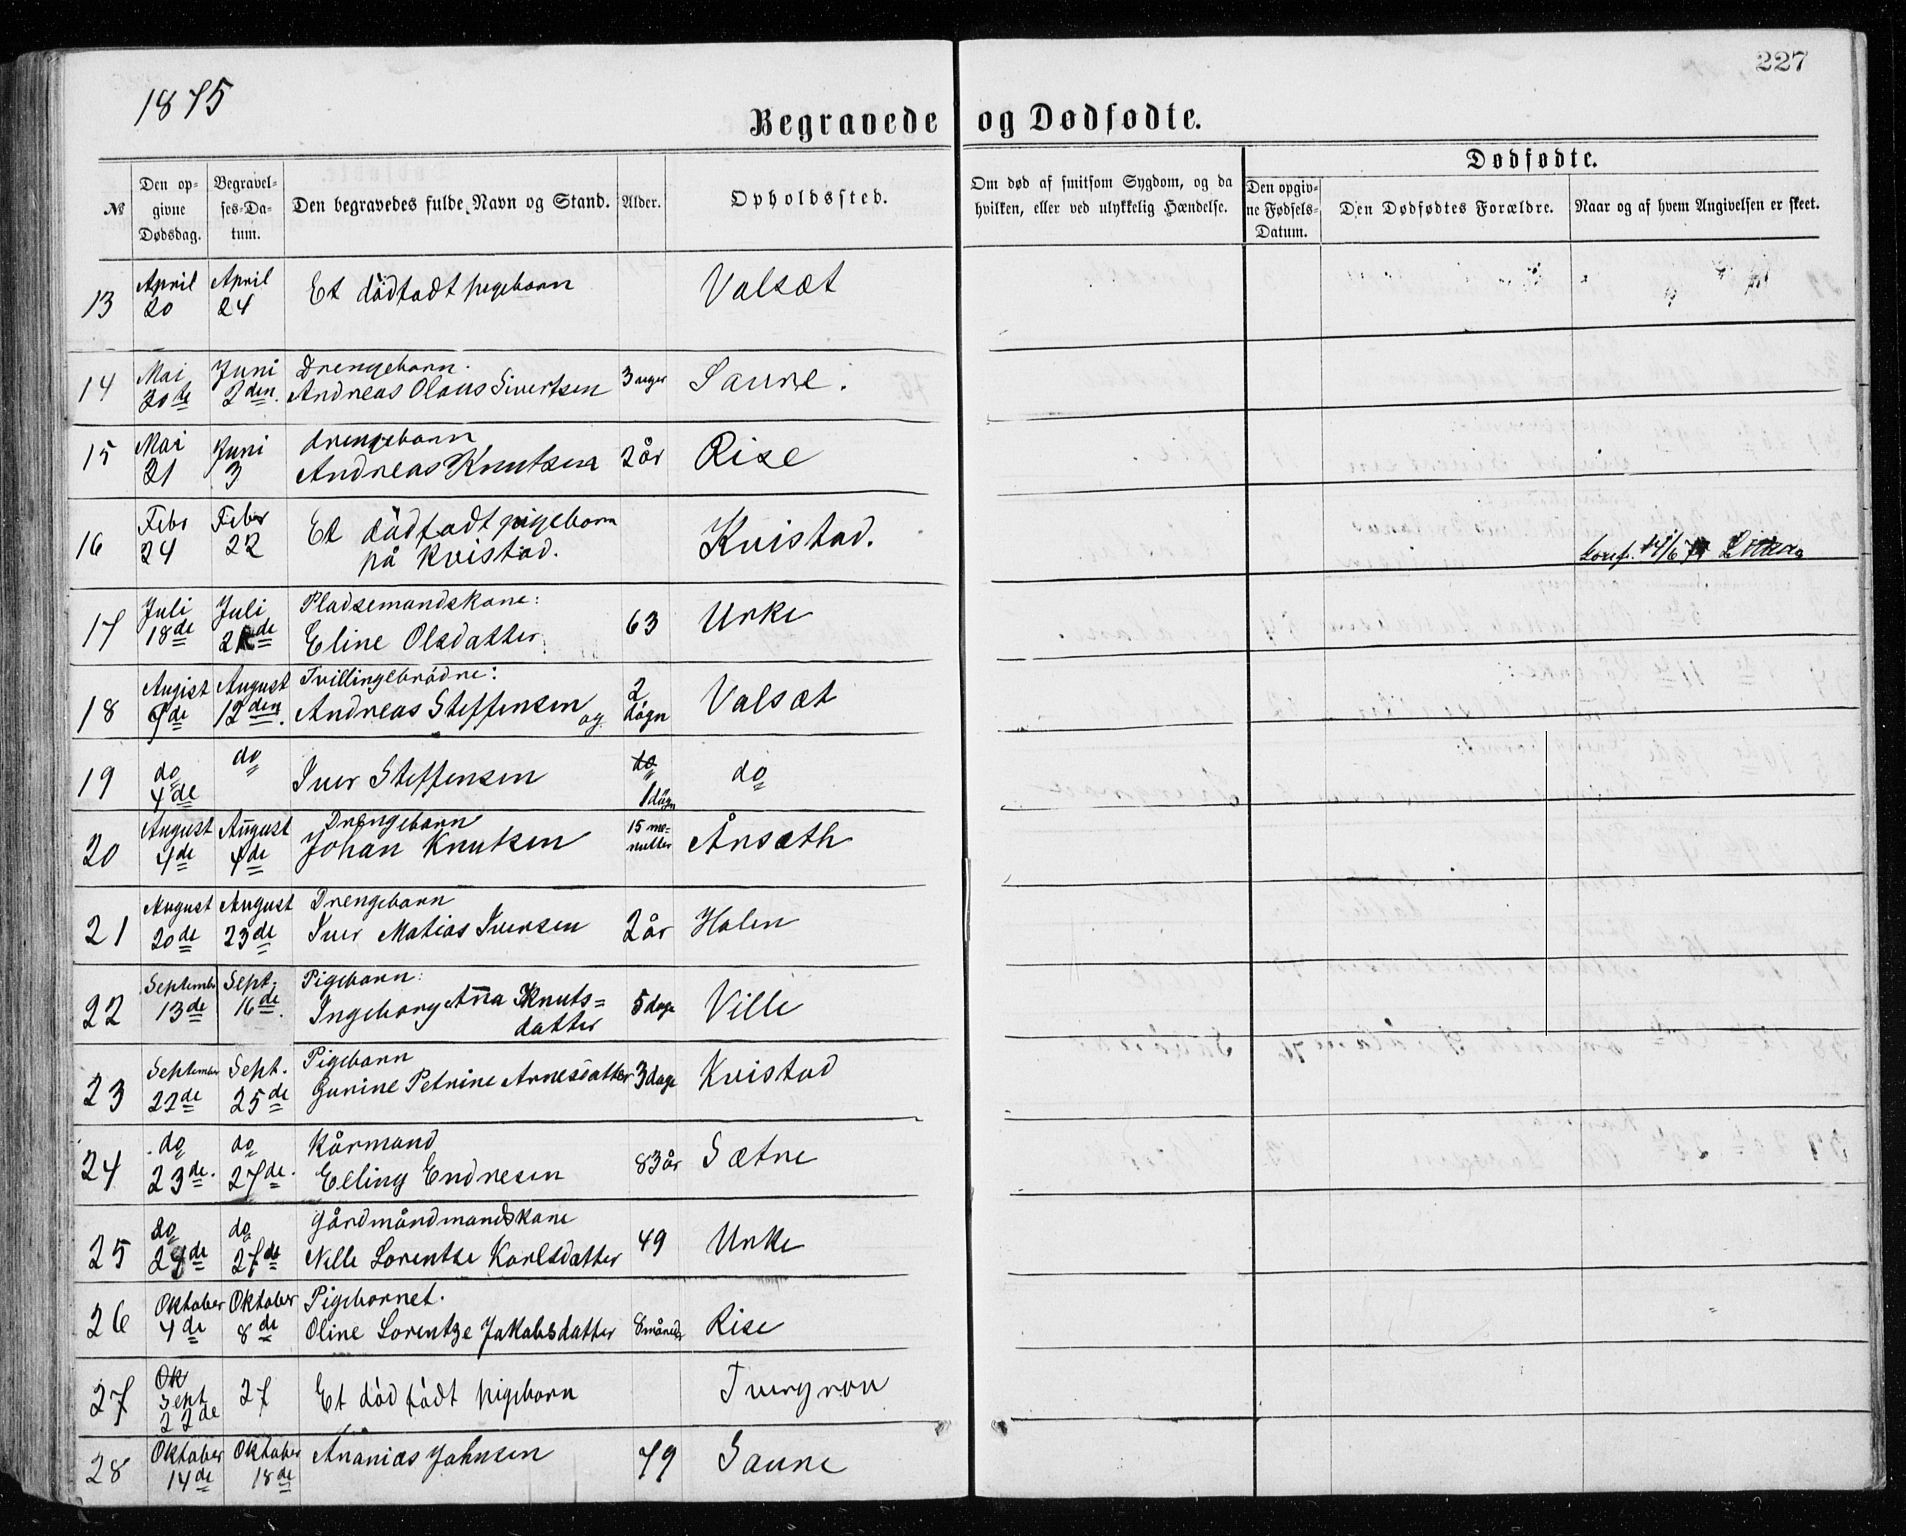 227
1875
Begravede og Dødfødte.
№
Den opgivne Dødsdag.
Begravelses-Datum.
Den begravedes fulde Navn og Stand.
Alder.
Opholdssted.
Om død af smitsom Sygdom, og da hvilken, eller ved ulykkelig Hændelse.
Dødfødte.
Den opgivne Fødsels-Datum.
Den Dødfødtes Forældre.
Naar og af hvem Angivelsen er skeet.
13 April 20 April 24 Et dödfödt pigebarn Valsæt
14 Mai 20te Juni 2den. Drengebarn. Andreas Olaus Sivertsen 3 uger Saure.
15 Mai 21 Juni 3 drengebarn Andreas Knutsen 2 år Rise
16 Febr 24 Febr 22 Et dödfödt pigebarn på Kvistad. Kvistad.
17 Juli 18de Juli Pladsemandskone: Eline Olsdatter 63 Urke
18 August August 12den. Tvillingebrødne: Andreas Steffensen og 2 døgn Valsæt
19 do 4de do Iver Steffensen do 1 døgn do
20 August 4de August 4de Drengebarn Johan Knutsen 15 menutter Årsæth
21 August 20de August 23de Drengebarn Iver Matias Iversen 2 år Holen
22 September 13de Sept. 16de. Pigebarn: Ingeborg Anna Knuts=datter 5 dage Ville
23 September 22de Sept. 25de Pigebarn Gurine Petrine Arnesdatter 3 dage Kvistad
24 do 23de. do 27de. Kårmand Elling Endresen 83 år Sætre
25 do do 27de Nille Lorentse Karlsdatter 49 Urke
26 Oktober 4de Oktober 8de Pigebarnet. Oline Lorentze Jakobsdatter 8 måneder Rise
27 Ok Sept 22de 27 Et död födt pigebarn
28 Oktober 14de Oktober 18de Ananias Johnsen 79 Saure